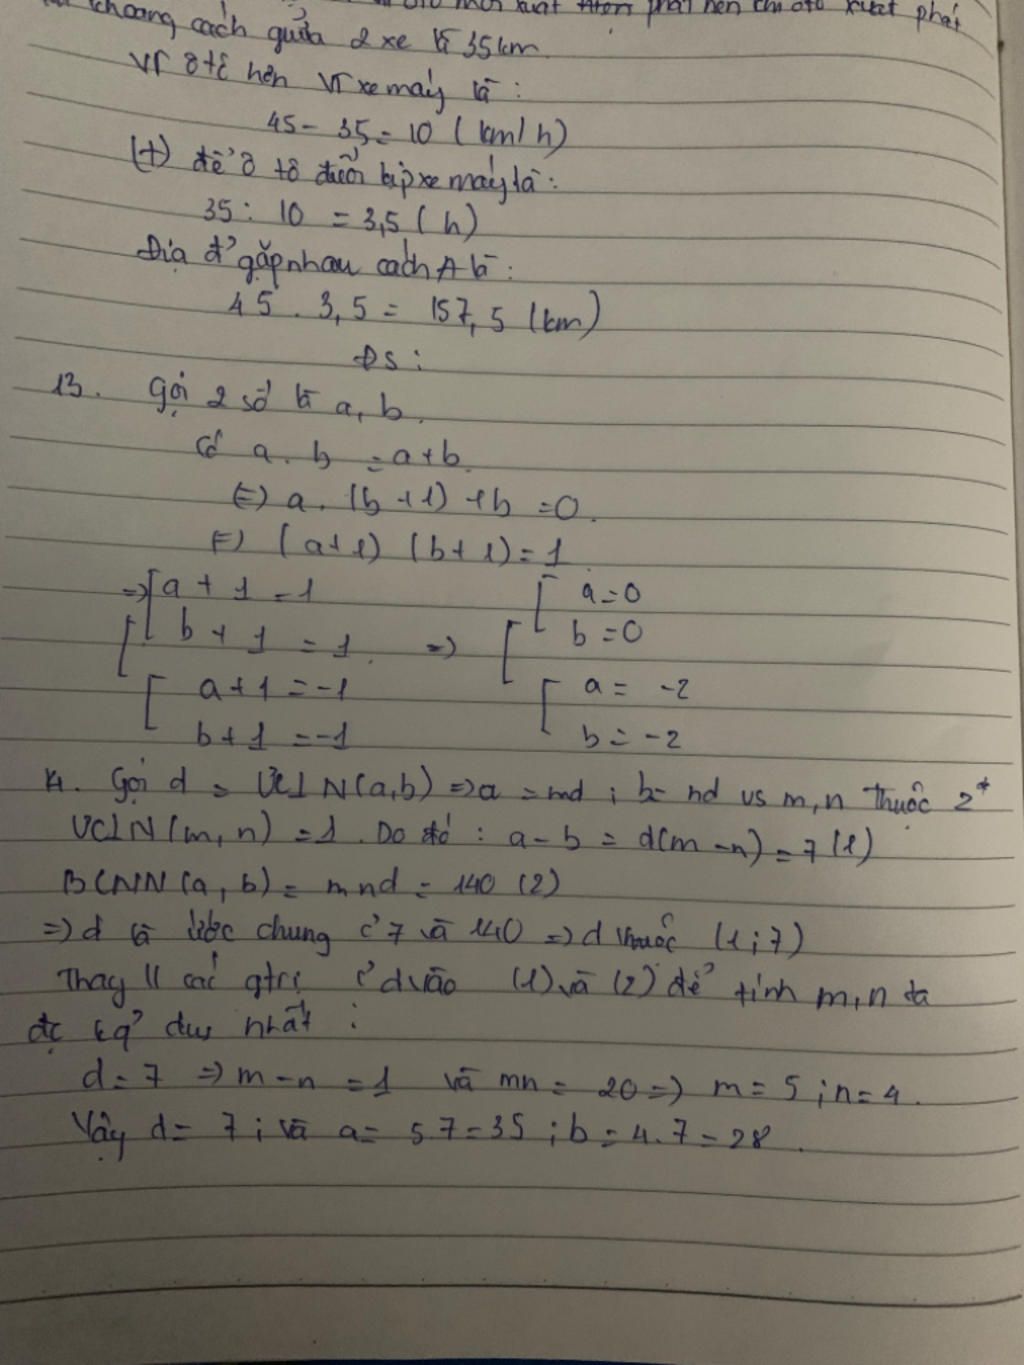 khoảng cách giữa 2 xe là 35km.
VT ôtô hơn VT xe máy là :
45 - 35 = 10 (km/h)
(+) để ô tô đuổi kịp xe máy là :
35 : 10 = 3,5 (h)
Địa đ' gặp nhau cách A là :
45 . 3,5 = 157,5 (km)
ĐS :
13. Gọi 2 số là a, b.
Có a . b = a + b.
(=) a . (b + 1) + b = 0.
(=) (a + 1) (b + 1) = 1
=> [ a + 1 = 1 [ a = 0
[ b + 1 = 1. => [ b = 0
[ a + 1 = -1 [ a = -2
b + 1 = -1 b = -2
14. Gọi d = ƯCLN(a,b) => a = md ; b = nd vs m, n thuộc Z*
ƯCLN(m, n) = 1. Do đó : a - b = d(m - n) = 7 (1)
BCNN(a, b) = mnd = 140 (2)
=> d là ước chung c' 7 và 140 => d thuộc (1 ; 7)
Thay các gtrị c' d vào (1) và (2) để tính m, n ta
đc kq' duy nhất :
d = 7 => m - n = 1 và mn = 20 => m = 5 ; n = 4.
Vậy d = 7 ; và a = 5.7 = 35 ; b = 4.7 = 28.